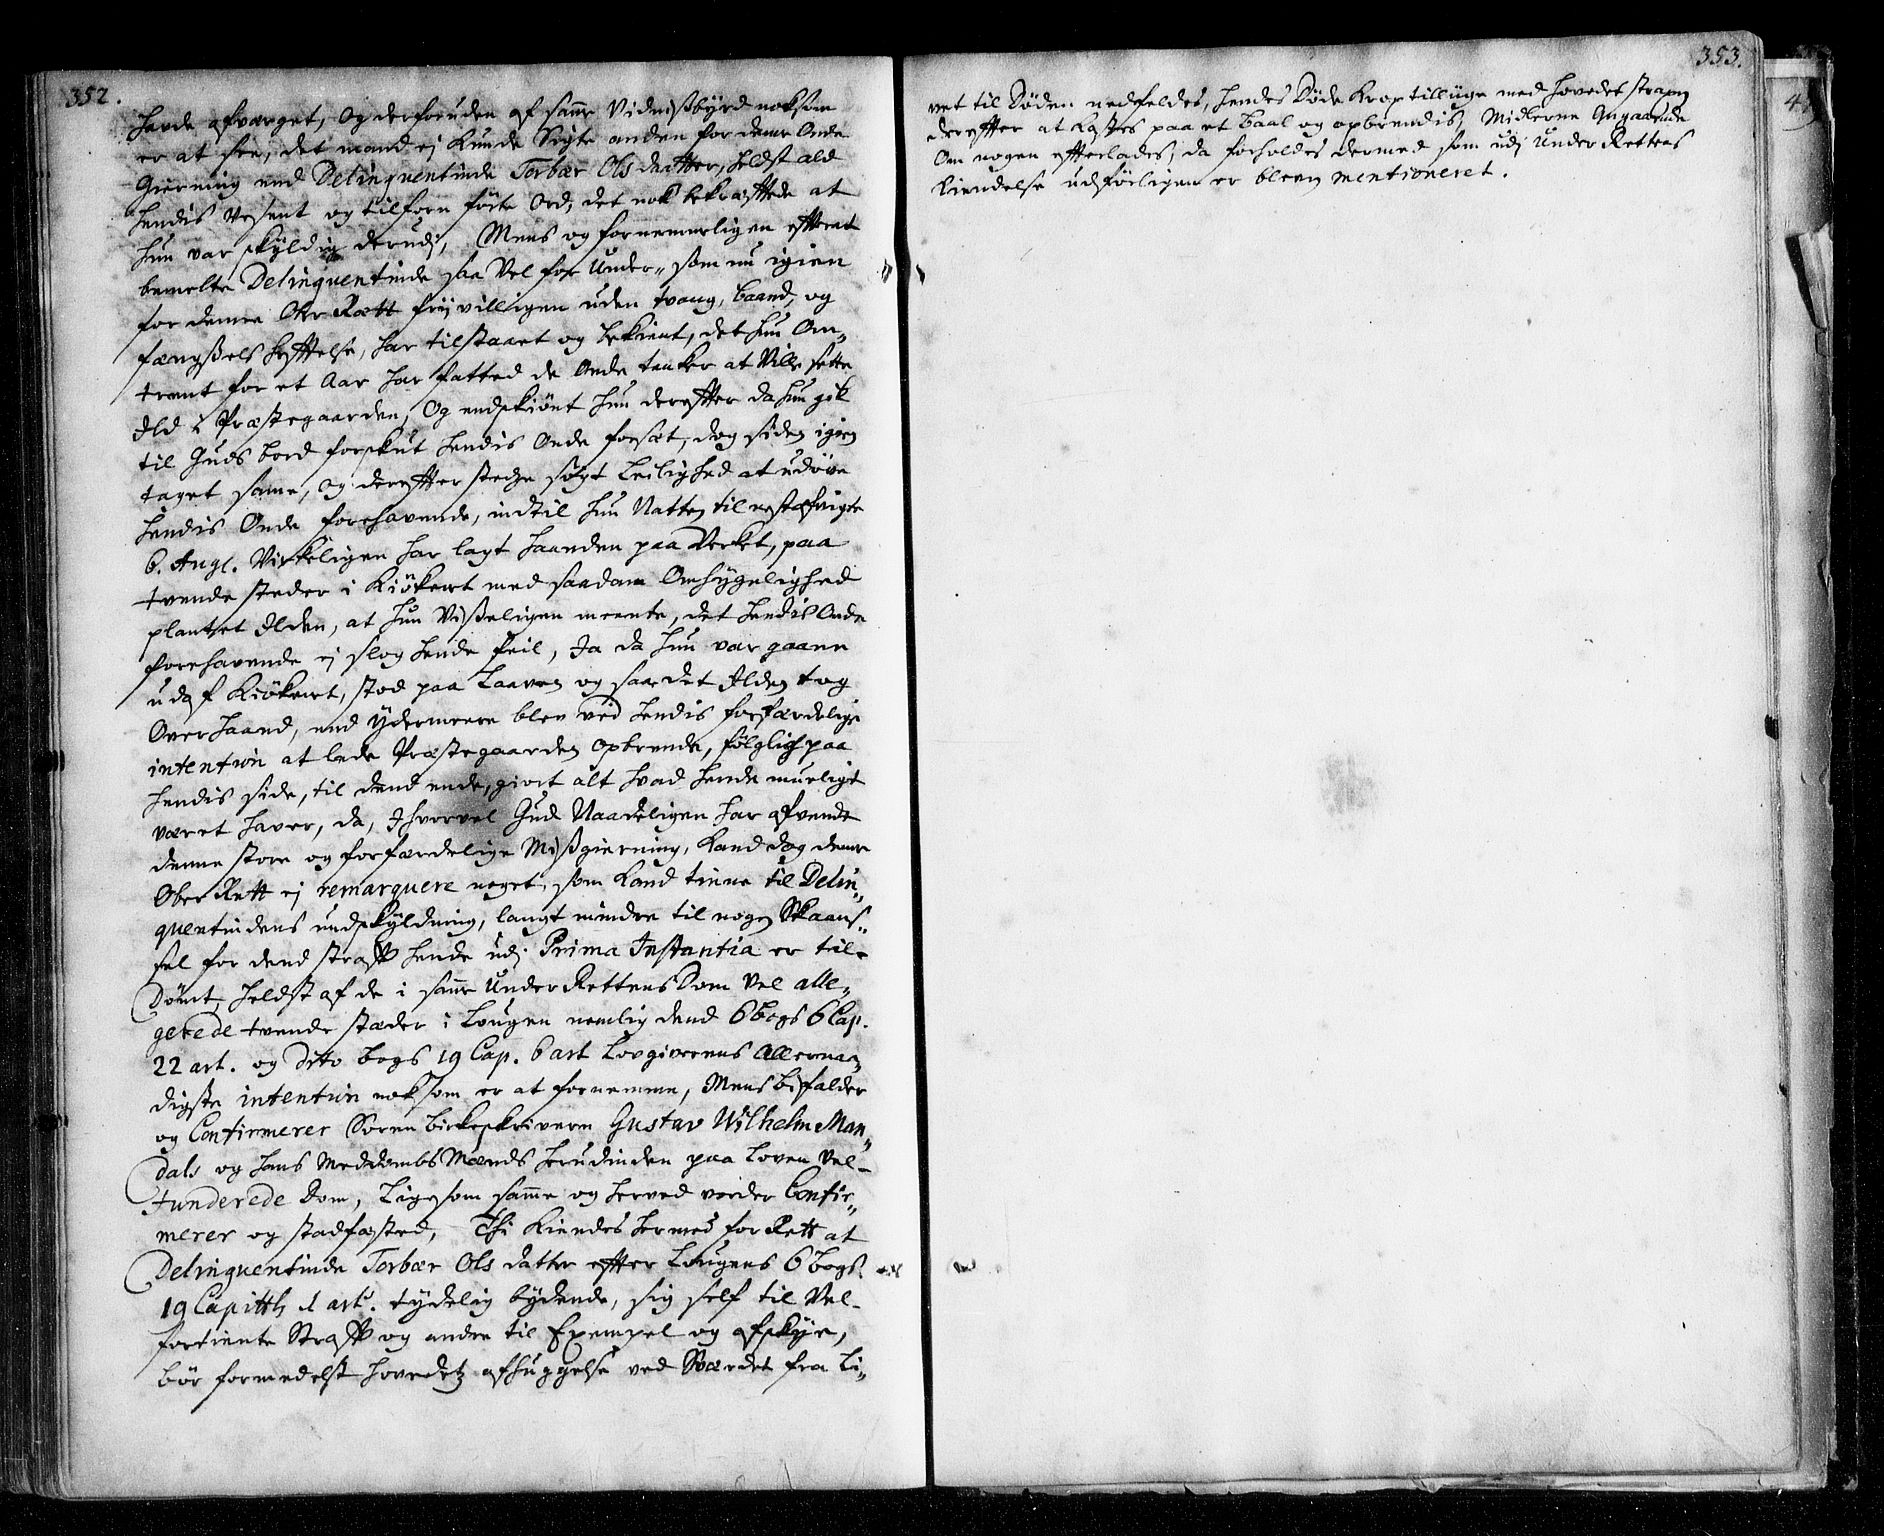 352.
hafde afværget, Og derforuden af samme Vidnissbyrd noksom
er at see, det mand ej kunde Sigte anden for denne Onde
Gierning end Delinquentinde Torbær Ols daatter, helst ald
hendis Vesent og tilforn förte Ord, det nok bekræfftede at
hun var skÿldig derudj, Mens og fornemmeligen efftersom
bemelte Delinquentinde saa Vel for Under- som nu igien
for denne Ober Rett frÿvilligen uden tvang, baand, og
fængssels hefftelse, har tilstaaet og bekient, det hun Om„
trent for et Aar har fatted de Onde tanker at Ville sette
Ild i Præstegaarden, Og endskiönt hun derefter da hun gik
til Guds bord forskiut hendis Onde forset, dog siden igien
taget samme, og derefter stedse sögt Leilighed at udöve
hendis Onde forehavende, indtil hun Natten til nestafvigte
6. Aug. Virkeligen har lagt haanden paa Verket, paa
tvende steder i Kiökenet med saadan Omhÿgelighed
plantet Ilden, at hun Visseligen meente, det hendis Onde
forehavende ej slog hende feil, Ja da hun var gaaen
ud af Kiökenet, stod paa Laaven og saae det Ilden tog
Overhaand, end ÿdermeere blev ved hendis forfærdelige
intention at lade Præstegaarden opbrende, fölglig paa
hendis side, til dend ende, giort alt hvad hende mueligt
været haver, da, Ihvorvel Gud Naadeligen har afvendt
denne store og forfærdelige Missgierning, Kand dog denne
Ober Rett ej remarquere noget, som kand tiene til Delin„
quentindens undskÿldning, langt mindre til nogen Skaans„
sel for dend straff hende udj Prima Instantia er til„
Dömt, heldst af de i samme Under Rettens Dom vel alle„
gerede tvende stæder i Lougen nemlig dend 6 bogs 6 Cap.
22 art. og dito bogs 19 Cap. 6 art Lovgiverens Allernaa„
digste intention noksom er at fornemme, Mens bifalder
og Confirmerer Soren birkeskrivern Gustav Wilhelm Man„
dals og hans MeddombsMænds herudinden paa Loven vel„
funderede Dom, Ligesom samme og herved vorder Confir„
merer og stadfæsted, Thi Kiendes hermed for Rett at
Delinquentinde Torbær Ols datter effter Lougens 6 bogs
19 Capittls 1 art. tÿdelig bÿdende, sig self til Vel„
fortiente Straff og andre til Exempel og afskÿe,
bör formedelst hovedetz afhuggelse ved Sværdet fra Li„
353.
vet til Döden nedfeldes, hendes Döde Krop tillige med hovedet strax
derefter at kastes paa et baal og opbrendis, Midlerne Angaaende
Om nogen effterlades, da forholdes dermed som udj Under Rettens
kiendelse udförligen er bleven mentioneret.